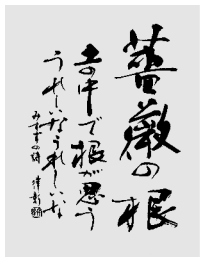 薔薇の
根
土の中で根が思う
うれしいなうれしいな
みすゞの詩